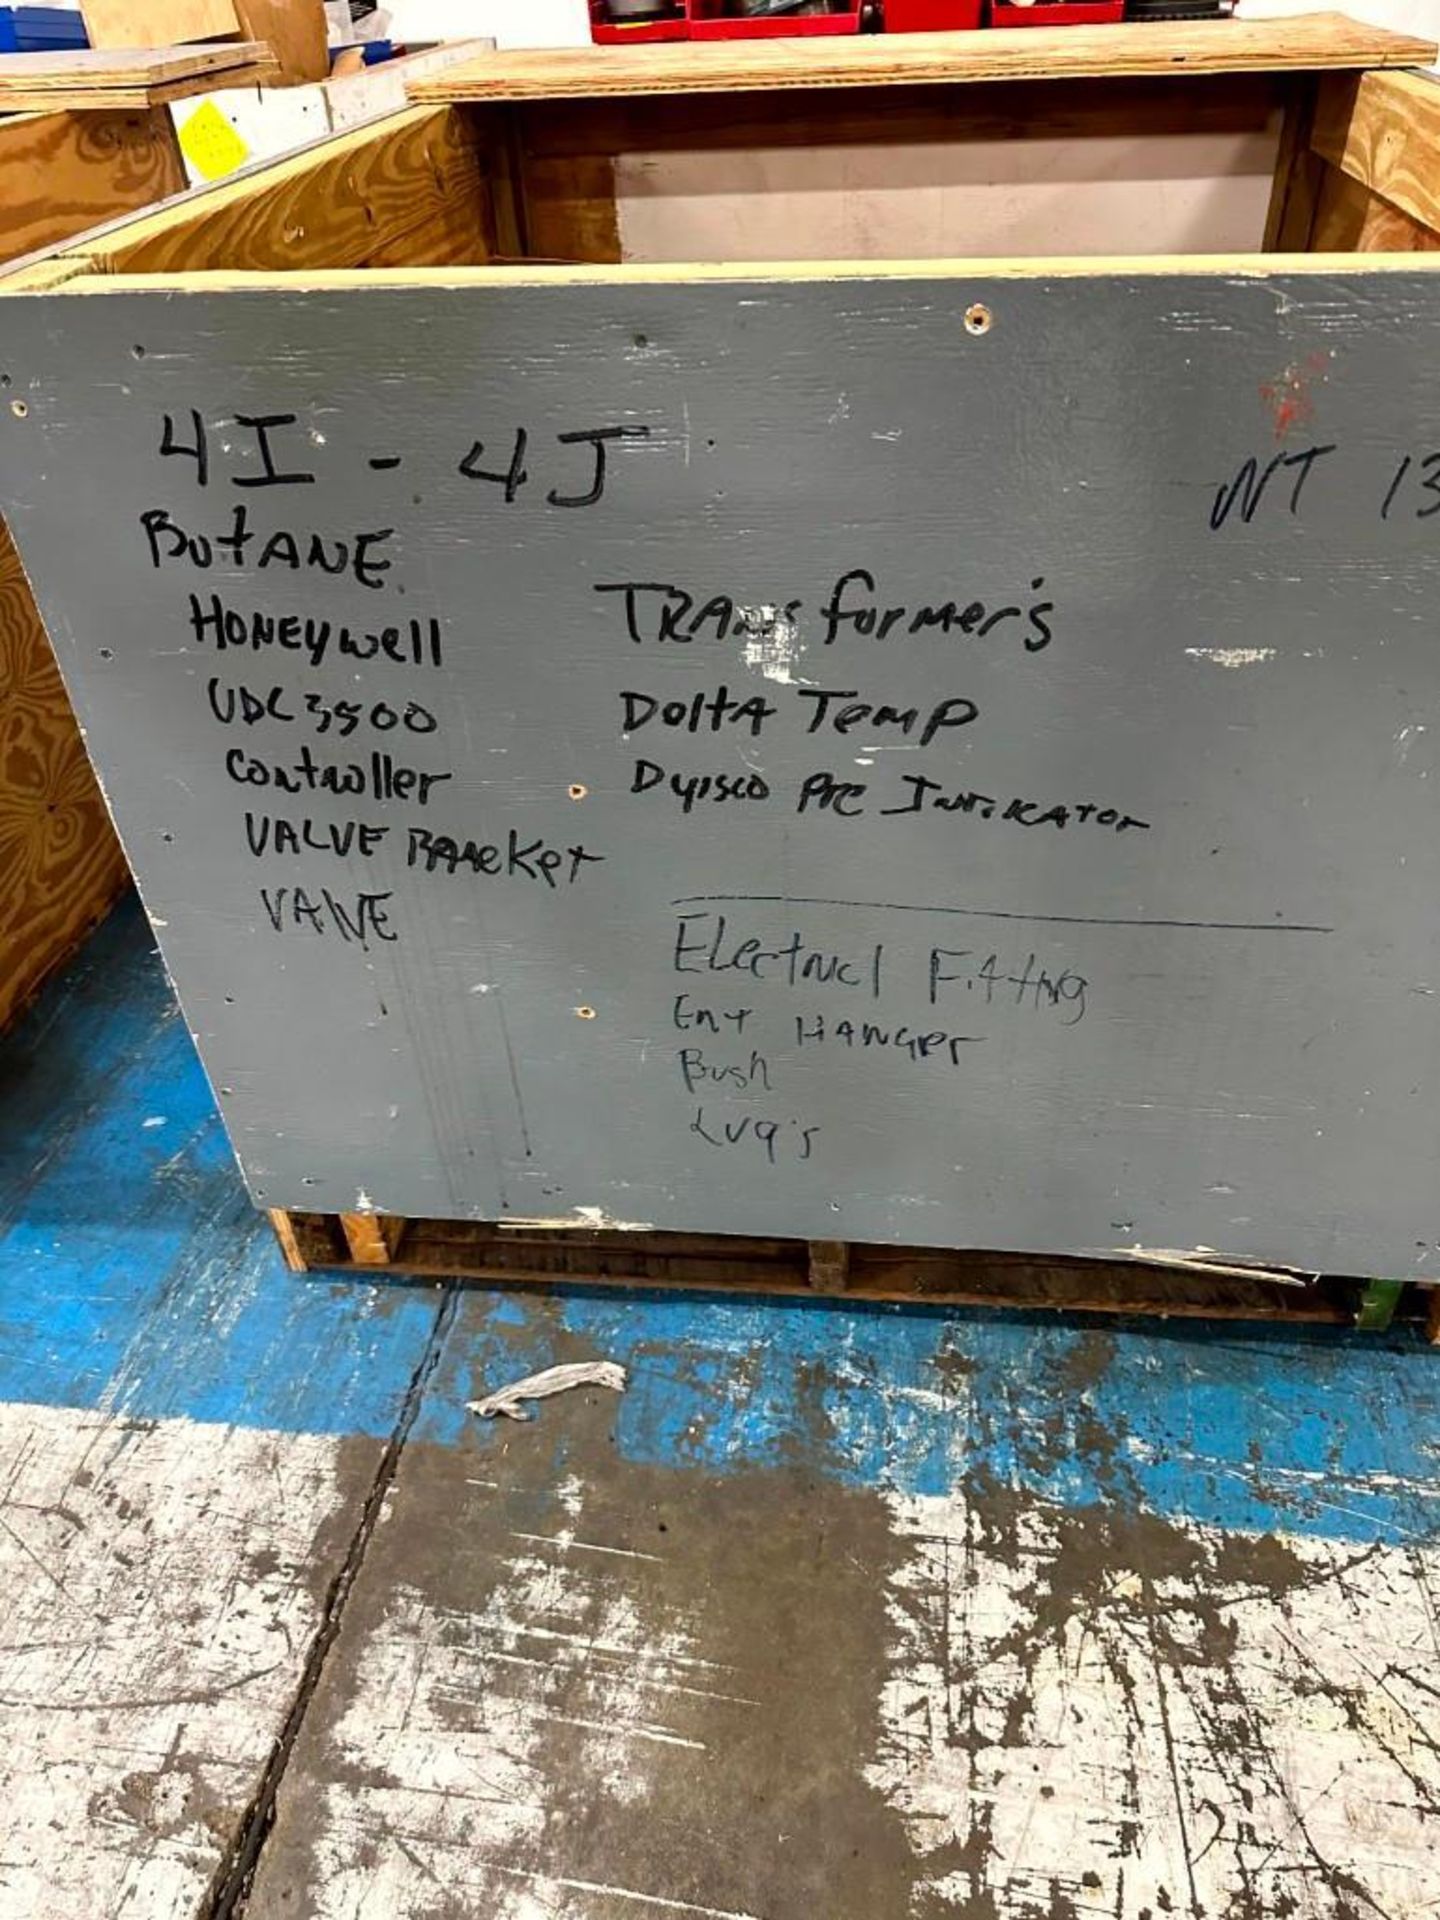 4I - 4J
WT 13
ButANE
Honeywell
UDC3500
Controller
VALVE BRACKET
VALVE
TRANSformer's
DoltA Temp
Dyisco Pre
Electricl Fitting
Ent HANGER
Bush
Lug's